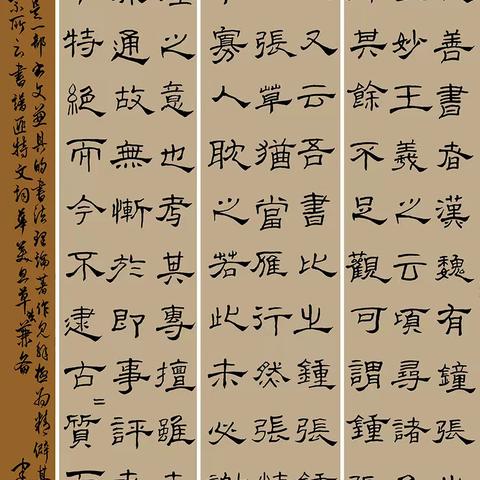 善書者漢魏有鐘張
妙王羲之云頃尋諸
其餘不足觀可謂鍾張
又云吾書比之鍾張鍾
張草猶當雁行然張精
寡人耽之若此未必謝
之意也考其專擅雖未
通故無慚於即事評
特絕而今不逮古=質而
是一部书文兼具的書法理論著作見解極为精僻其
所云書譜匪特文词華美且草法兼备